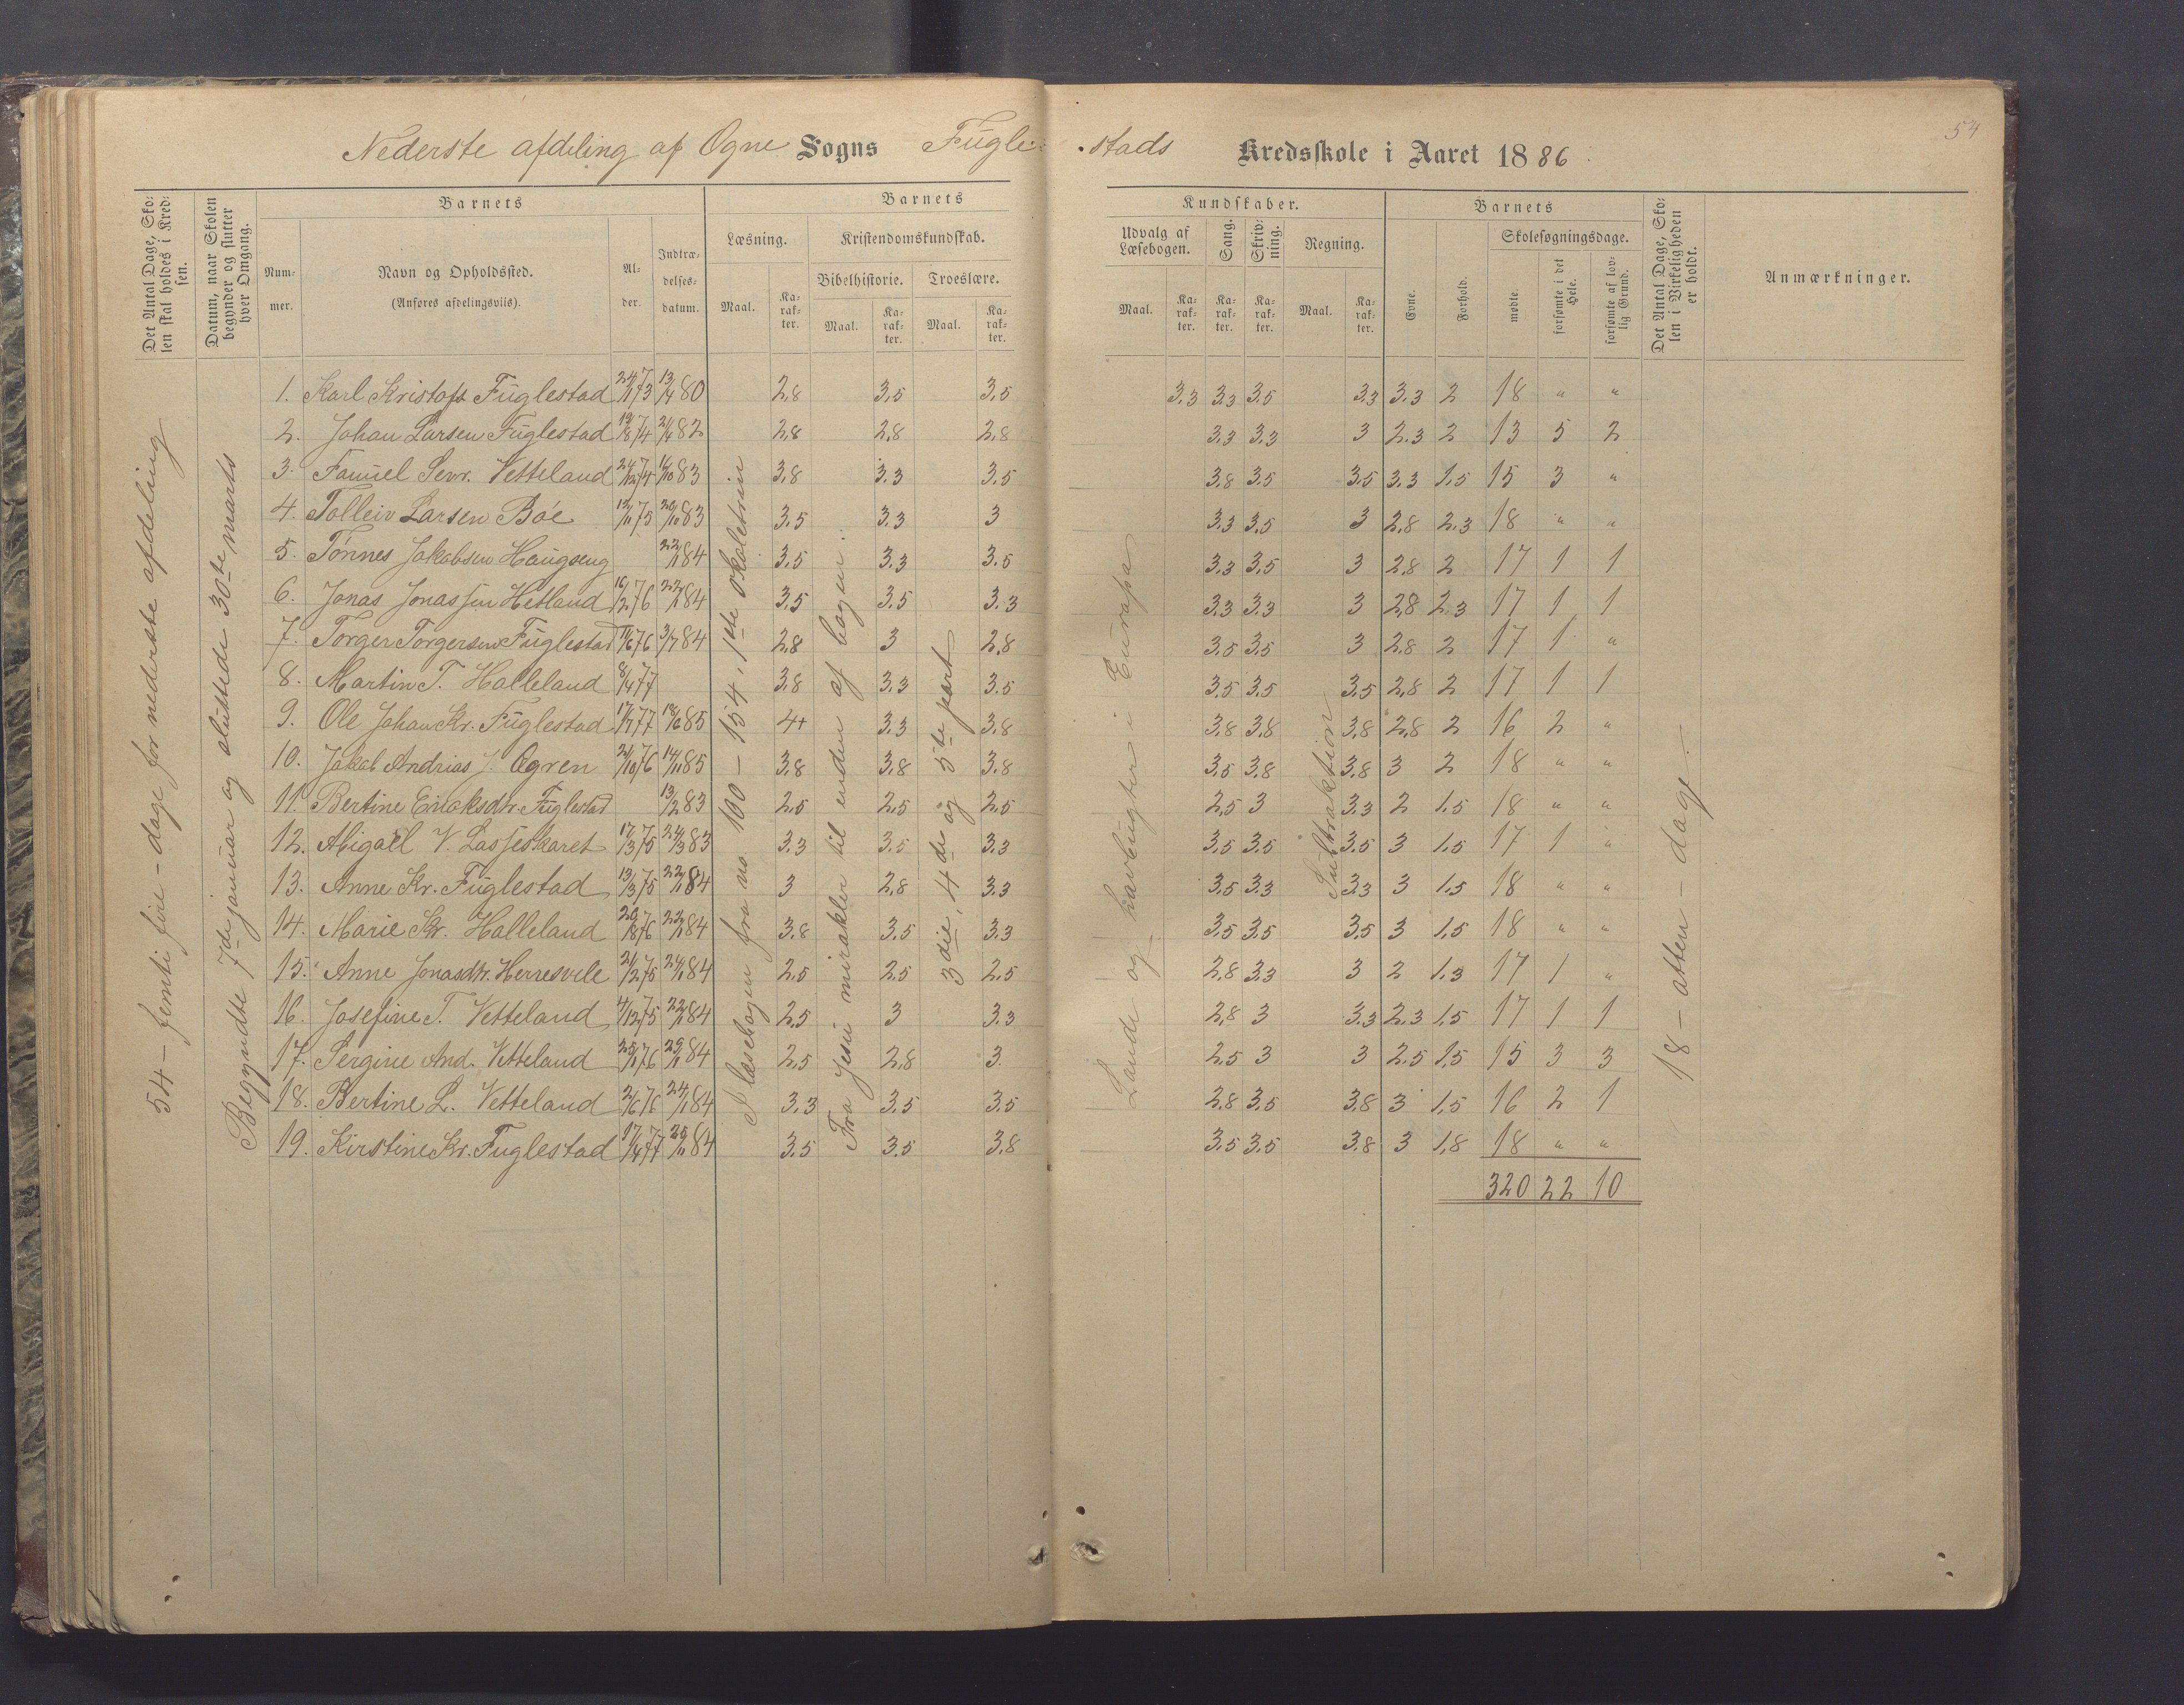 Nederste afdeling af Ogne Sogns Fugle-stads Kredsskole i Aaret 1886.
54
Det Antal Dage, Skolen skal holdes i Kredsen.
Datum, naar Skolen begynder og slutter hver Omgang.
Barnets
Nummer.
Navn og Opholdssted.
(Anføres afdelingsviis).
Alder.
Indtrædelsesdatum.
Barnets
Kundskaber.
Læsning.
Maal.
Karakter.
Kristendomskundskab.
Bibelhistorie.
Maal.
Karakter.
Troeslære.
Maal.
Karakter.
Udvalg af Læsebogen.
Maal.
Karakter.
Sang.
Karakter.
Skrivning.
Karakter.
Regning.
Maal.
Karakter.
Barnets
Evne.
Forhold.
Skolesøgningsdage.
mødte.
forsømte i det Hele.
forsømte af lovlig Grund.
Det Antal Dage, Skolen i Virkeligheden er holdt.
Anmærkninger.
54 - femti fire - dage for nederste afdeling
Begyndte 7de januar og sluttede 30te marts
I læsebogen fra no 100 - 154, 1ste skoletrin
Fra Jesu mirakler til enden af bogen.
3die, 4de og 5te part
Lande og havbugter i Europa
Subtraktion
18 - atten - dage -
1. Karl Kristofs Fuglestad 24/1 73 13/4 80 2,8 3,5 3,5 3,3 3,3 3,5 3,3 3,3 2 18 " "
2. Johan Larsen Fuglestad 19/8 74 2/4 82 2,8 2,8 2,8 3,3 3,3 3 2,3 2 13 5 2
3. Samuel Sevr. Vetteland 24/12 74 1/10 83 3,8 3,3 3,5 3,8 3,5 3,5 3,3 1,5 15 3 "
4. Tolleiv Larsen Bøe 12/11 75 20/10 83 3,5 3,3 3 3,3 3,5 3 2,8 2,3 18 " "
5. Tønnes Jakobsen Haugseng 22/1 84 3,5 3,3 3,5 3,3 3,5 3 2,8 2 17 1 1
6. Jonas Jonassen Hetland 16/2 76 22/1 84 3,5 3,5 3,3 3,3 3,3 3 2,8 2,3 17 1 1
7. Torger Torgersen Fuglestad 11/6 76 3/7 84 2,8 3 2,8 3,5 3,5 3 2,8 2 17 1 "
8. Martin T. Halleland 8/4 77 3,8 3,3 3,5 3,5 3,5 3,5 2,8 2 17 1 1
9. Ole Johan Kr. Fuglestad 17/7 77 18/6 85 4+ 3,3 3,8 3,8 3,8 3,8 2,8 2 16 2 "
10. Jakob Andrias J. Ogren 21/10 76 14/11 85 3,8 3,8 3,8 3,5 3,8 3,8 3 2 18 " "
11. Bertine Enoksdtr. Fuglestad 13/2 83 2,5 2,5 2,5 2,5 3 3,3 2 1,5 18 " "
12. Abigael V. Lasseskaret 17/3 75 24/3 83 3,3 3,5 3,3 3,5 3,5 3,5 3 1,5 17 1 "
13. Anne Kr. Fuglestad 13/3 75 22/1 84 3 2,8 3,3 3,5 3,3 3,3 3 1,5 18 " "
14. Marie Kr. Halleland 20/8 76 22/1 84 3,8 3,5 3,3 3,5 3,5 3,5 3 1,5 18 " "
15. Anne Jonasdtr. Herresvele 21/2 75 24/1 84 2,5 2,5 2,5 2,8 3,3 3 2 1,3 17 1 "
16. Josefine T. Vetteland 4/12 75 22/1 84 2,5 3 3,3 2,8 3 3,3 2,3 1,5 17 1 1
17. Sergine And. Vetteland 25/1 76 29/1 84 2,5 2,8 3 2,5 3 3 2,5 1,5 15 3 3
18. Bertine L. Vetteland 2/6 76 24/1 84 3,3 3,5 3,5 2,8 3,5 3,8 3 1,5 16 2 1
19. Kirstine Kr. Fuglestad 17/4 77 25/11 84 3,5 3,5 3,8 3,5 3,5 3,8 3 1,8 18 " "
320 22 10